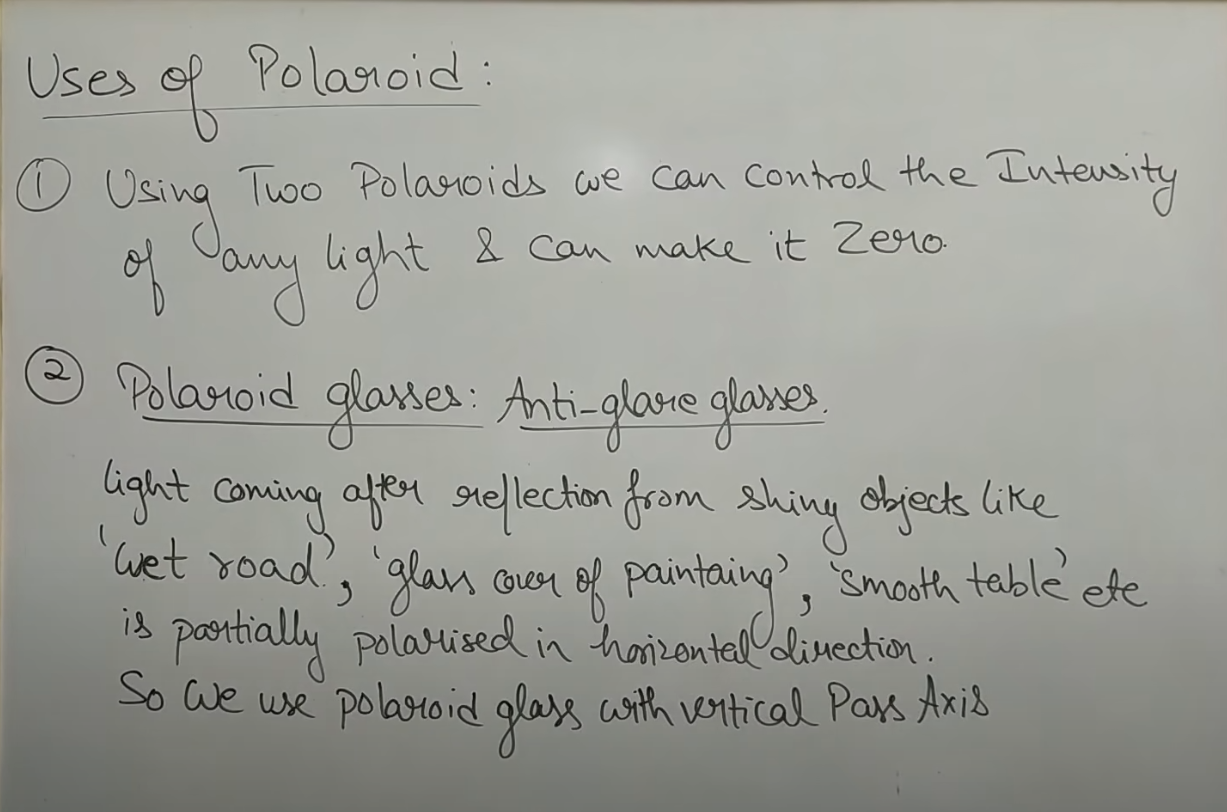 Uses of Polaroid:
① Using Two Polaroids we can control the Intensity
of any light & can make it Zero.
② Polaroid glasses: Anti-glare glasses.
light coming after reflection from shiny objects like
'wet road', 'glass cover of paintaing', 'smooth table' etc
is partially polarised in horizontal direction.
So we use polaroid glass with vertical Pass Axis